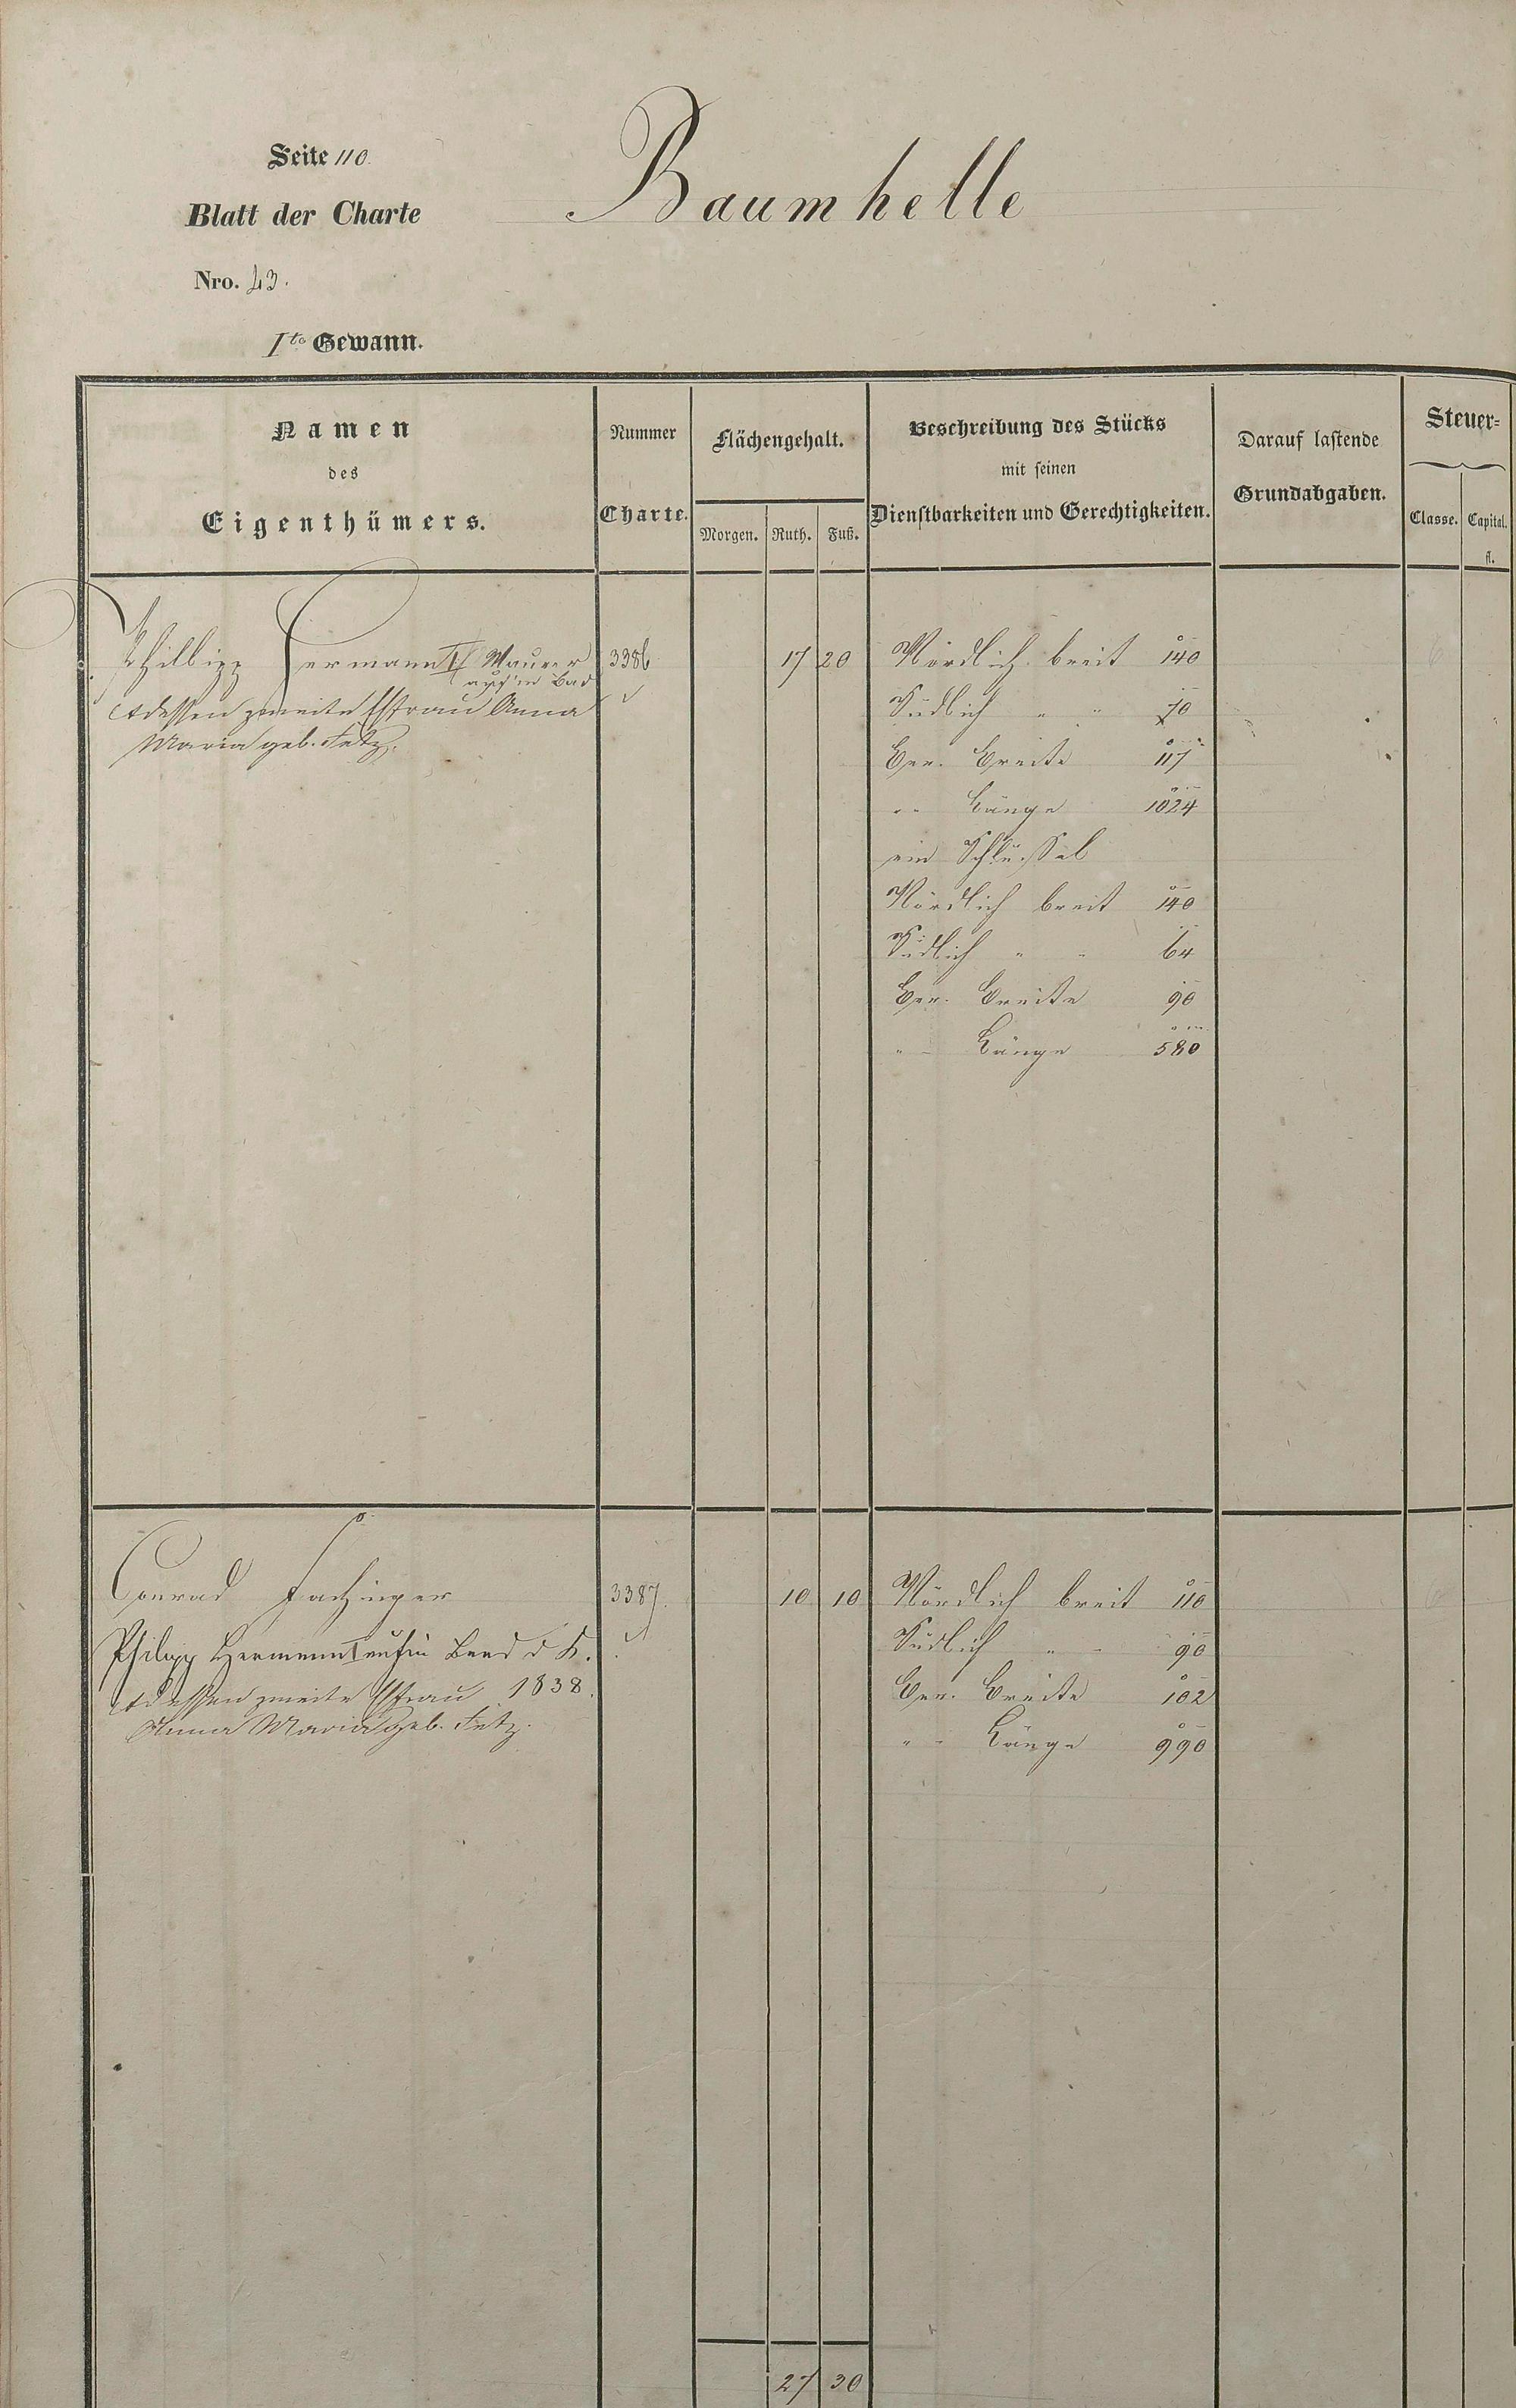 Seite 110.
Baumhelle
Blatt der Charte
Nro. 43.
Ite Gewann.
Namen
des
Eigenthümers.
Nummer
Charte.
Flächengehalt.
Morgen. Ruth. Fuß.
Beschreibung des Stücks
mit seinen
Dienstbarkeiten und Gerechtigkeiten.
Darauf lastende
Grundabgaben.
Steuer-
Classe. Capital.
fl.
Philipp Hermann II Maurer 3386 17 20 Nördlich breit 140
auf'm Bad
dessen zweite Ehfrau Anna Südlich " " 70
Maria geb. Fetz. Ber. Breite 117
" Länge 1024
ein Schlüssel
Nördlich breit 140
Südlich " " 64
Ber. Breite 90
" Länge 580
6
Conrad Fachinger 3387. 10 10 Nördlich breit 110
6
Philipp Hermann I Südlich " " 90
dessen zweite Ehfrau 1838. Ber. Breite 102
Anna Maria geb. Fetz. " Länge 990
27 30